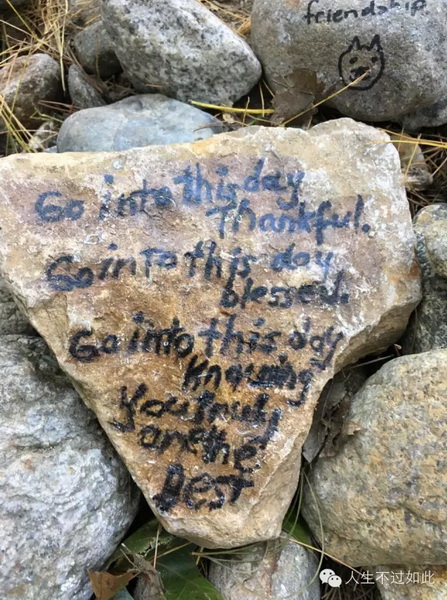 friendship
Go into this day
Thankful.
Go into this day
blessed.
Go into this day
Knowing
You truly
are the
Best
人生不过如此